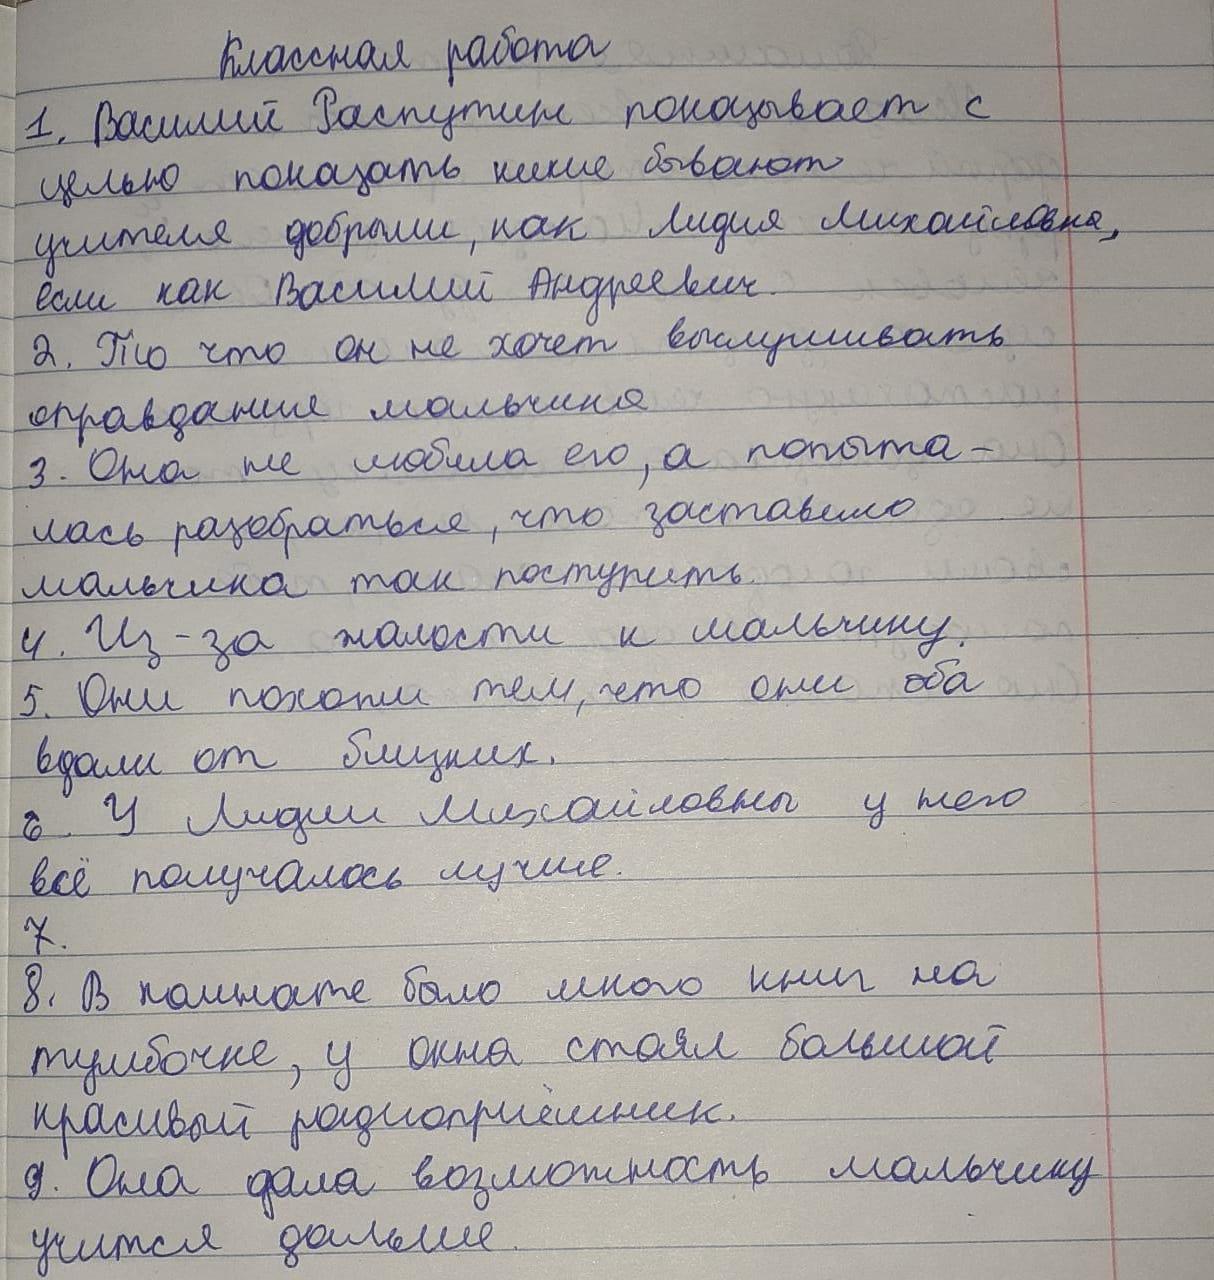 Классная работа
1. Василий Распутин показывает с
целью показать какие бывают
учителя добрыми, как Лидия Михайловна,
если как Василий Андреевич.
2. То что он не хочет выслушивать
оправдание мальчика
3. Она не любила его, а попыта-
лась разобраться, что заставило
мальчика так поступить.
4. Из-за жалости к мальчику.
5. Они похожи тем, что они оба
вдали от близких.
6. У Лидии Михайловны у него
всё получалось лучше.
7.
8. В комнате было много книг на
тумбочке, у окна стоял большой
красивый радиоприёмник.
9. Она дала возможность мальчику
учится дальше.